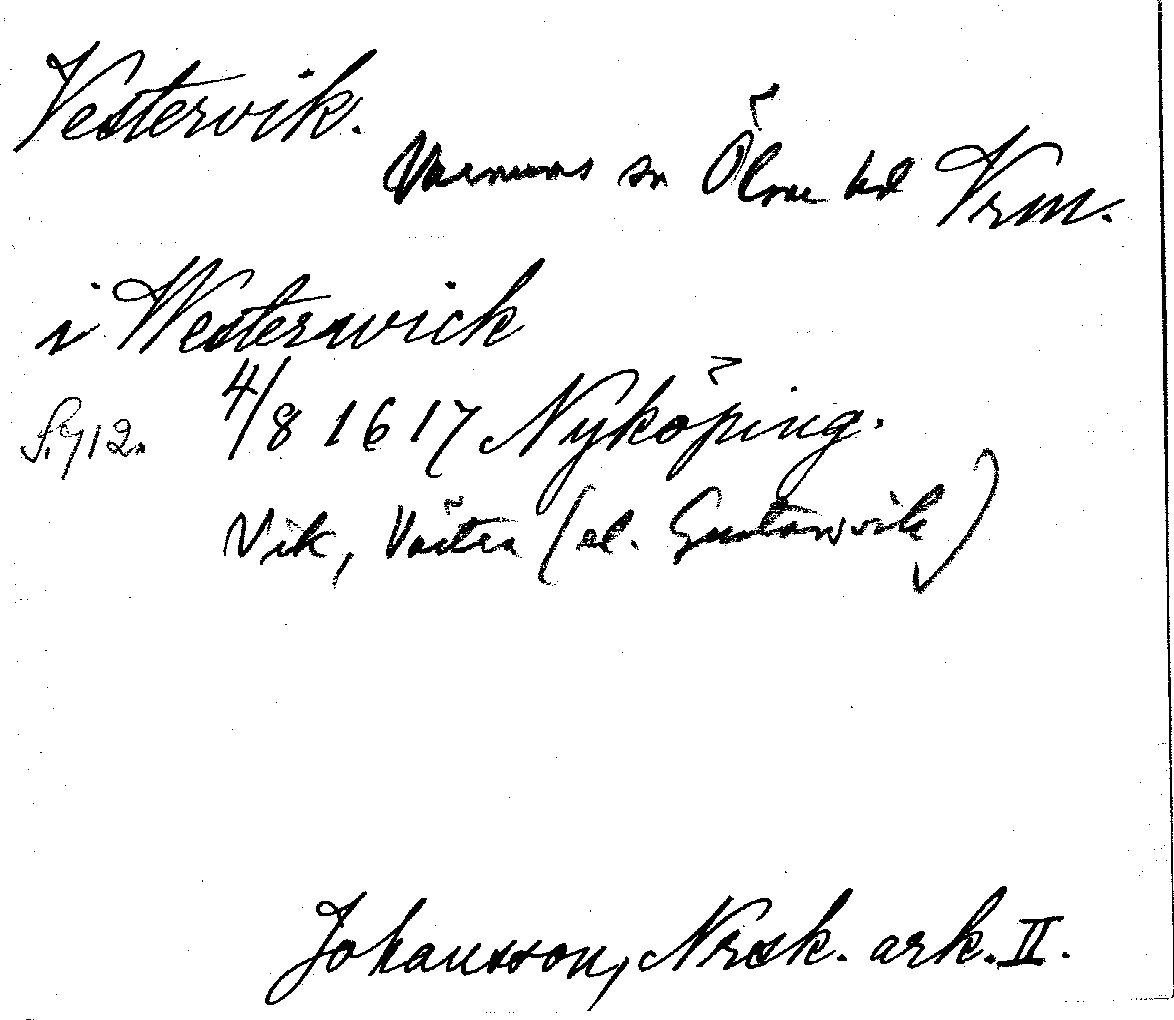 Vestervik.
Varnums sn Ölme hd Vrm.
i Westerwick
S. 912. 4/8 1617 Nyköping.
Vik, Västra (el. Gustavsvik)
Johansson, Nrsk. ark. II.